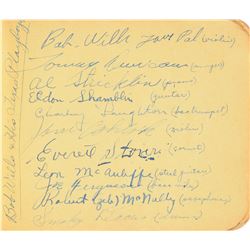 Bob Wills & His Texas Playboys
Bob Wills your Pal (violin)
Tommy Duncan
Al Stricklin (piano)
Eldon Shamblin (guitar)
Charley Laughton
Everett Stover (cornet)
Leon McAuliffe (steel guitar)
Joe Ferguson
(Zeb) McNally (saxophone)
Smoky Dacus (drums)